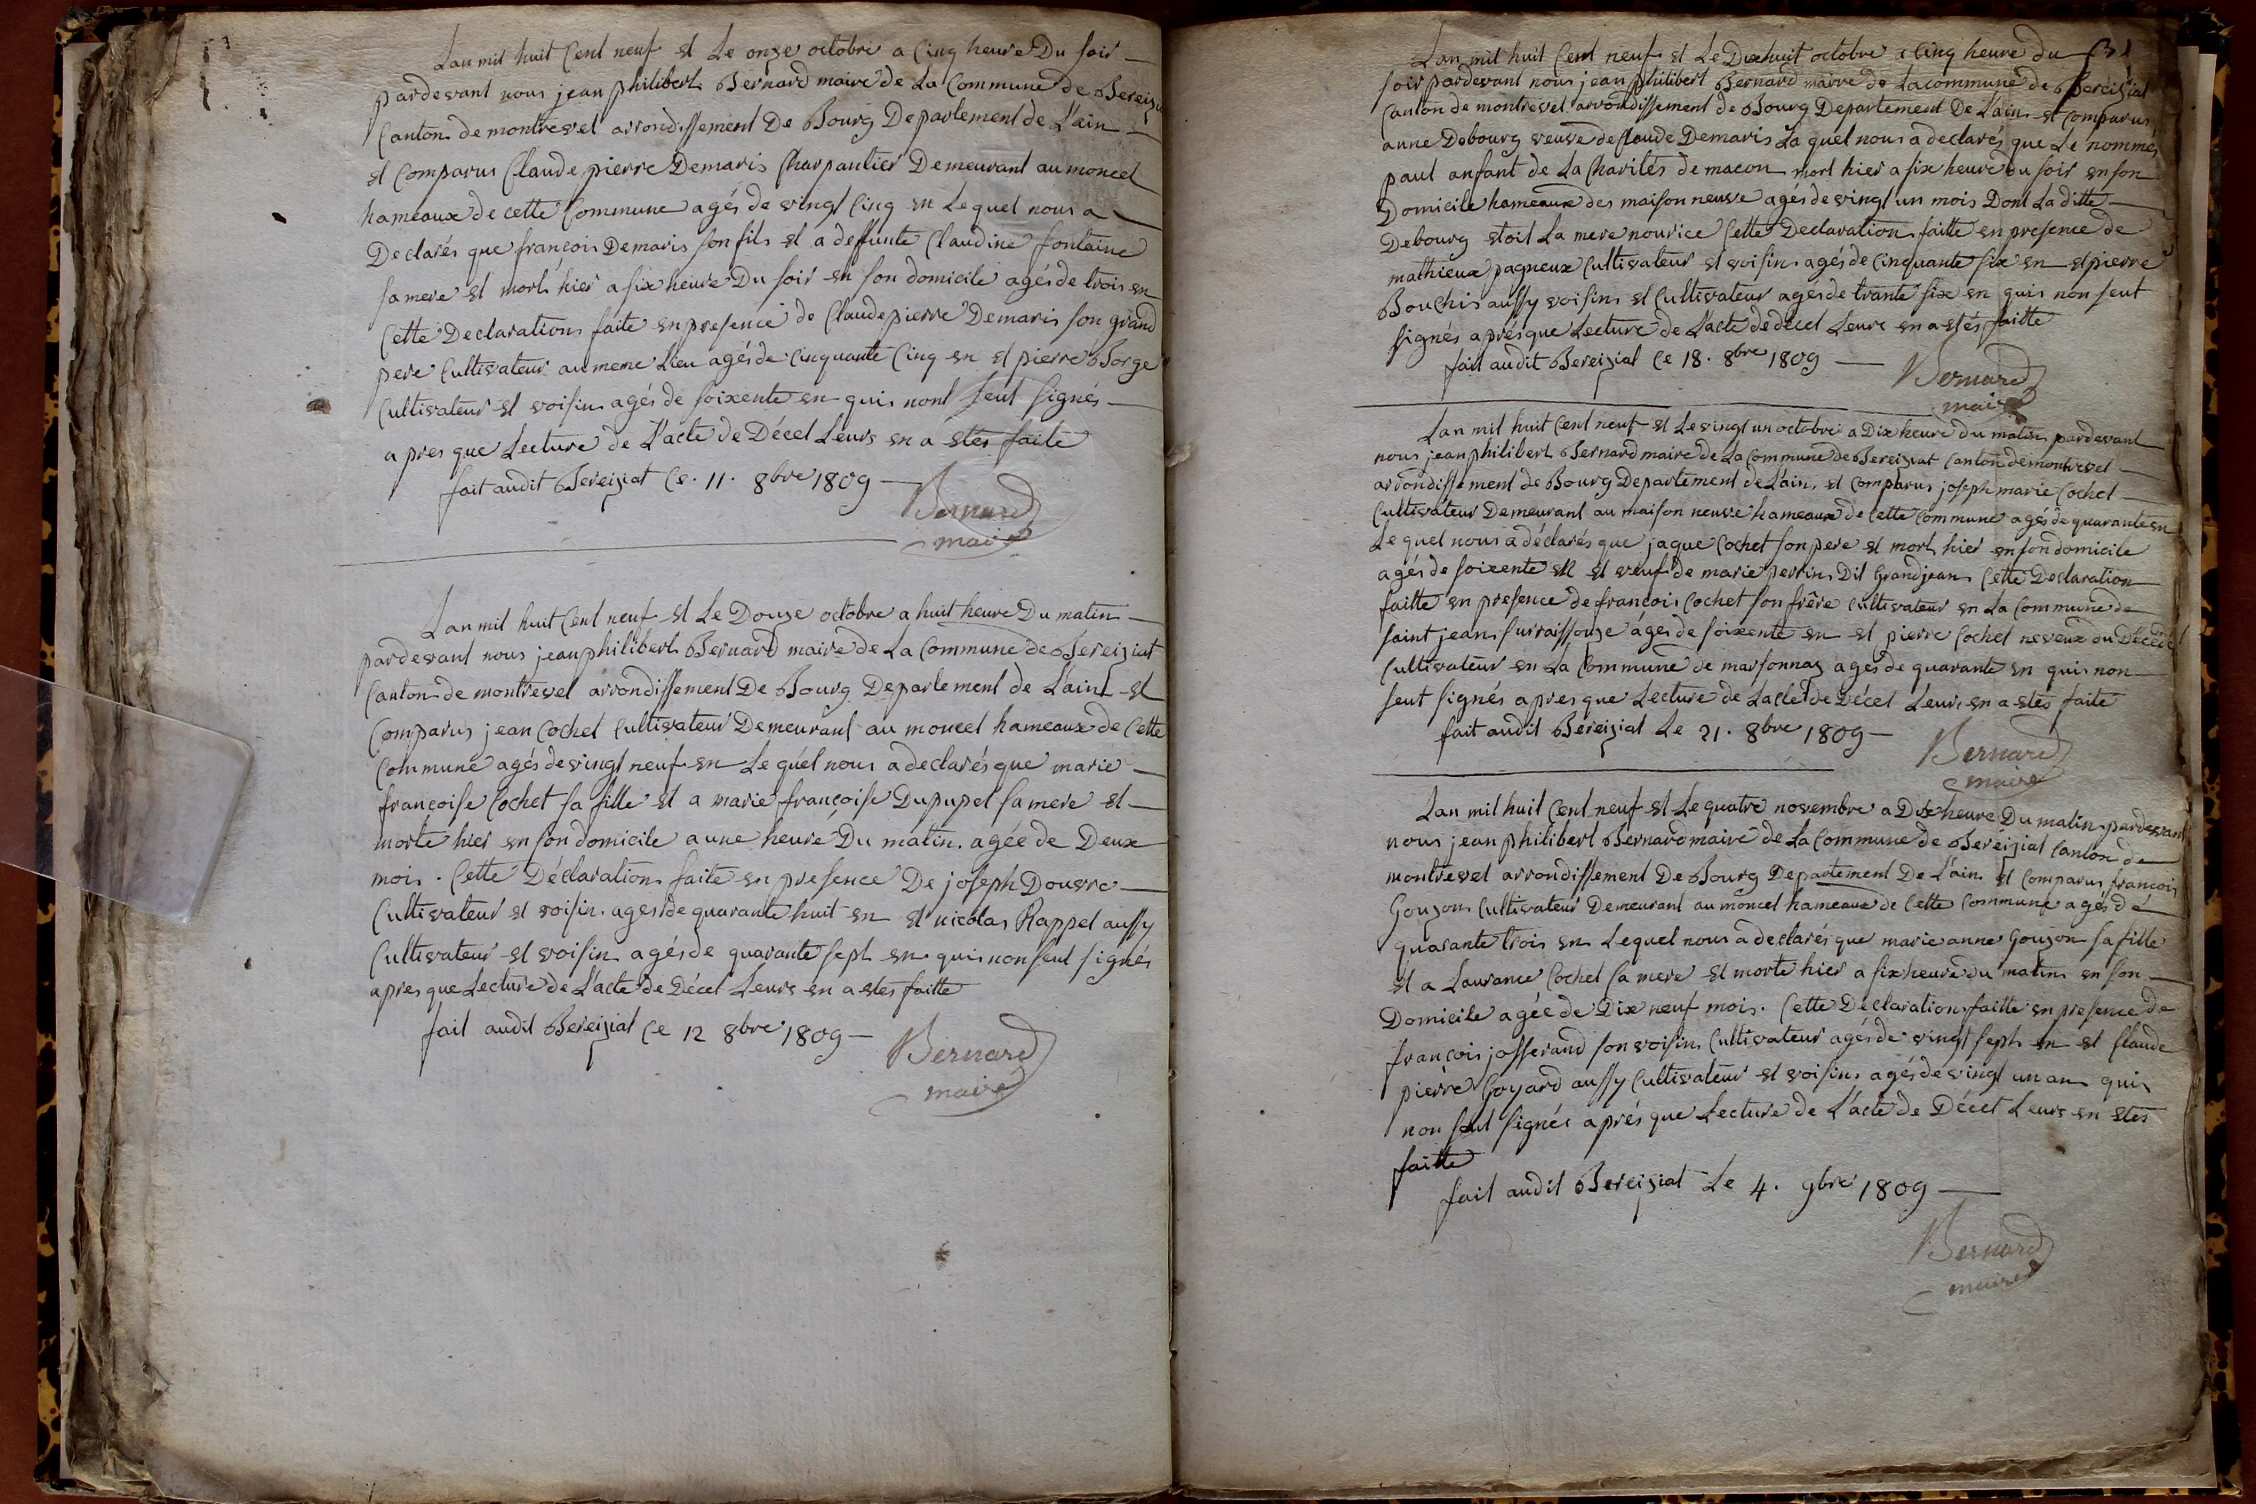 Lan mil huit Cent neuf et Le onze octobre a Cinq heure Du soir
pardevant nous jean philibert Bernard maire de La Commune de Bereiziat
Canton de montrevel arrondissement De Bourg Departement de L'ain
et Comparus Claude pierre Demaris Charpantier Demeurant au moncel
hameaux de cette Commune agés de vingt Cinq en Lequel nous a
Declarés que françois Demaris son fils et a deffunte Claudine fontaine
sa mere et mort hier a six heure Du soir en son domicile agés de trois en
Cette Declaration faite en presence de Claude pierre Demaris son grand
pere Cultivateur au meme Lieu agés de Cinquante Cinq en et pierre Borge
Cultivateur et voisin agés de soixente en qui nont seut signés
apres que Lecture de L'acte de Décet Leurs en a etés faite
fait audit Bereiziat Ce. 11. 8bre 1809
Bernard
maire
Lan mil huit Cent neuf et Le Douze octobre a huit heure Du matin
pardevant nous jean philibert Bernard maire de La Commune de Bereiziat
Canton de montrevel arrondissement De Bourg Departement de L'ain et
Comparus jean Cochet Cultivateur Demeurant au moncel hameaux de Cette
Commune agés de vingt neuf en Le quél nous a declarés que marie
françoise Cochet sa fille et a marie françoise Dupupet sa mere et
morte hier en son domicile a une heure Du matin. agée de Deux
mois. Cette Déclaration faite en presence De joseph Douvre
Cultivateur et voisin. agés de quarante huit en et nicolas Rappet aussy
Cultivateur et voisin agés de quarante sept en qui non seut signés
apres que Lecture de L'acte de Décet Leurs en a etes faitte
fait audit Bereiziat Ce 12 8bre 1809
Bernard
maire
31
Lan mil huit Cent neuf et Le Dixhuit octobre a Cinq heure du
soir pardevant nous jean philibert Bernard maire de La commune de Bereiziat
Canton de montrevel arrondissement de Bourg Departement De L'ain et Comparus
anne Debourg veuve de Claude Demaris La quel nous a declarés que Le nommés
paul anfant de La Charités de macon mort hier a six heure du soir en son
Domicile hameaux des maison neuve agés de vingt un mois Dont La ditte
Debourg etoit La mere nourice Cette Declaration faitte en presence de
mathieux pagneux Cultivateur et voisin agés de Cinquante six en et pierre
Bouchis aussy voisin et Cultivateur agés de trante six en qui non seut
signés aprés que Lecture de L'acte de décet Leurs en a etés faitte
fait audit Bereiziat Ce 18. 8bre 1809
Bernard
maire
Lan mil huit Cent neuf et Le vingt un octobre a Dix heure du matin pardevant
nous jean philibert Bernard maire de La Commune de Bereiziat Canton de montrevel
arrondissement de Bourg Departement de L'ain. et Comparus joseph marie Cochet
Cultivateur Demeurant au maison neuve hameaux de Cette Commune agés de quarante en
Le quel nous a déclarés que jaque Cochet son pere et mort hier en son domicile
agés de soixente en et veuf de marie perrin Dit Grandjean Cette Declaration
faitte en presence de francois Cochet son frére Cultivateur en La Commune de
saint jean surraissouze áges de soixente en et pierre Cochet neveux du Décédé
Cultivateur en La Commune de marsonnaz agés de quarante en qui non
seut signés apres que Lecture de Lacte de Décet Leurs en a etés faite
fait audit Bereiziat Le 21. 8bre 1809
Bernard
maire
Lan mil huit Cent neuf et Le quatre novembre a Dix heure Du matin pardevant
nous jean philibert Bernard maire de La Commune de Beréiziat Canton de
montrevel arrondissement De Bourg Departement De L'ain. et Comparus francois
Goujon Cultivateur Demeurant au moncel hameaux de Cette Commune agés de
quarante trois en Lequel nous a declarés que marie anne Goujon sa fille
et a Laurance Cochet sa mere et morte hier a six heure du matin en son
Domicile agée de Dix neuf mois. Cette Déclaration faitte en presence de
françois josserand son voisin Cultivateur agés de vingt sept en et Claude
pierre Goyard aussy Cultivateur et voisin agés de vingt un an qui
non seut signés aprés que Lecture de L'acte de Décet Leurs en etés
faitte
fait audit Bereiziat Le 4. 9bre 1809
Bernard
maire